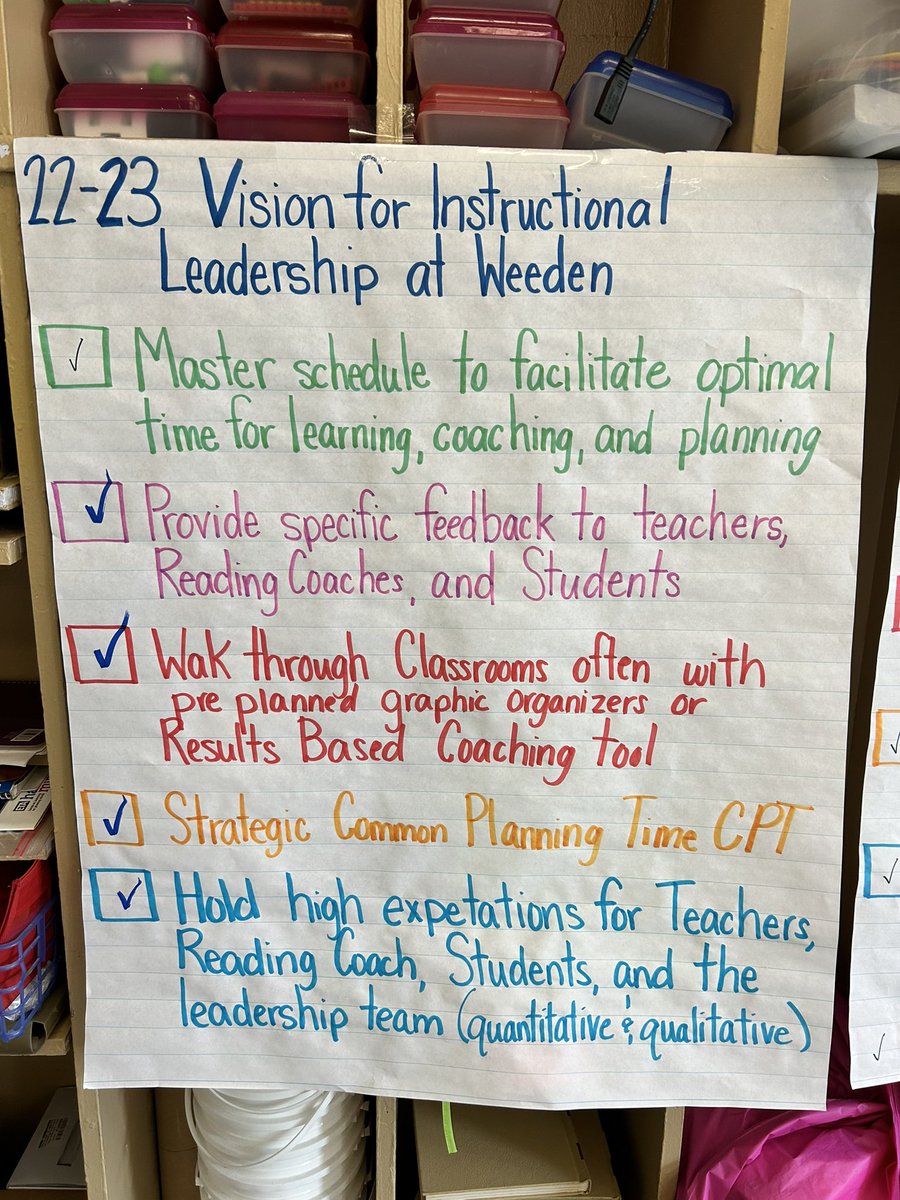 22-23 Vision for Instructional
Leadership at Weeden
Master schedule to facilitate optimal
time for learning, coaching, and planning
Provide specific feedback to teachers,
Reading Coaches, and Students
Wak through Classrooms often with
pre planned graphic organizers or
Results Based Coaching tool
Strategic Common Planning Time CPT
Hold high expetations for Teachers,
Reading Coach, Students, and the
leadership team (quantitative & qualitative)